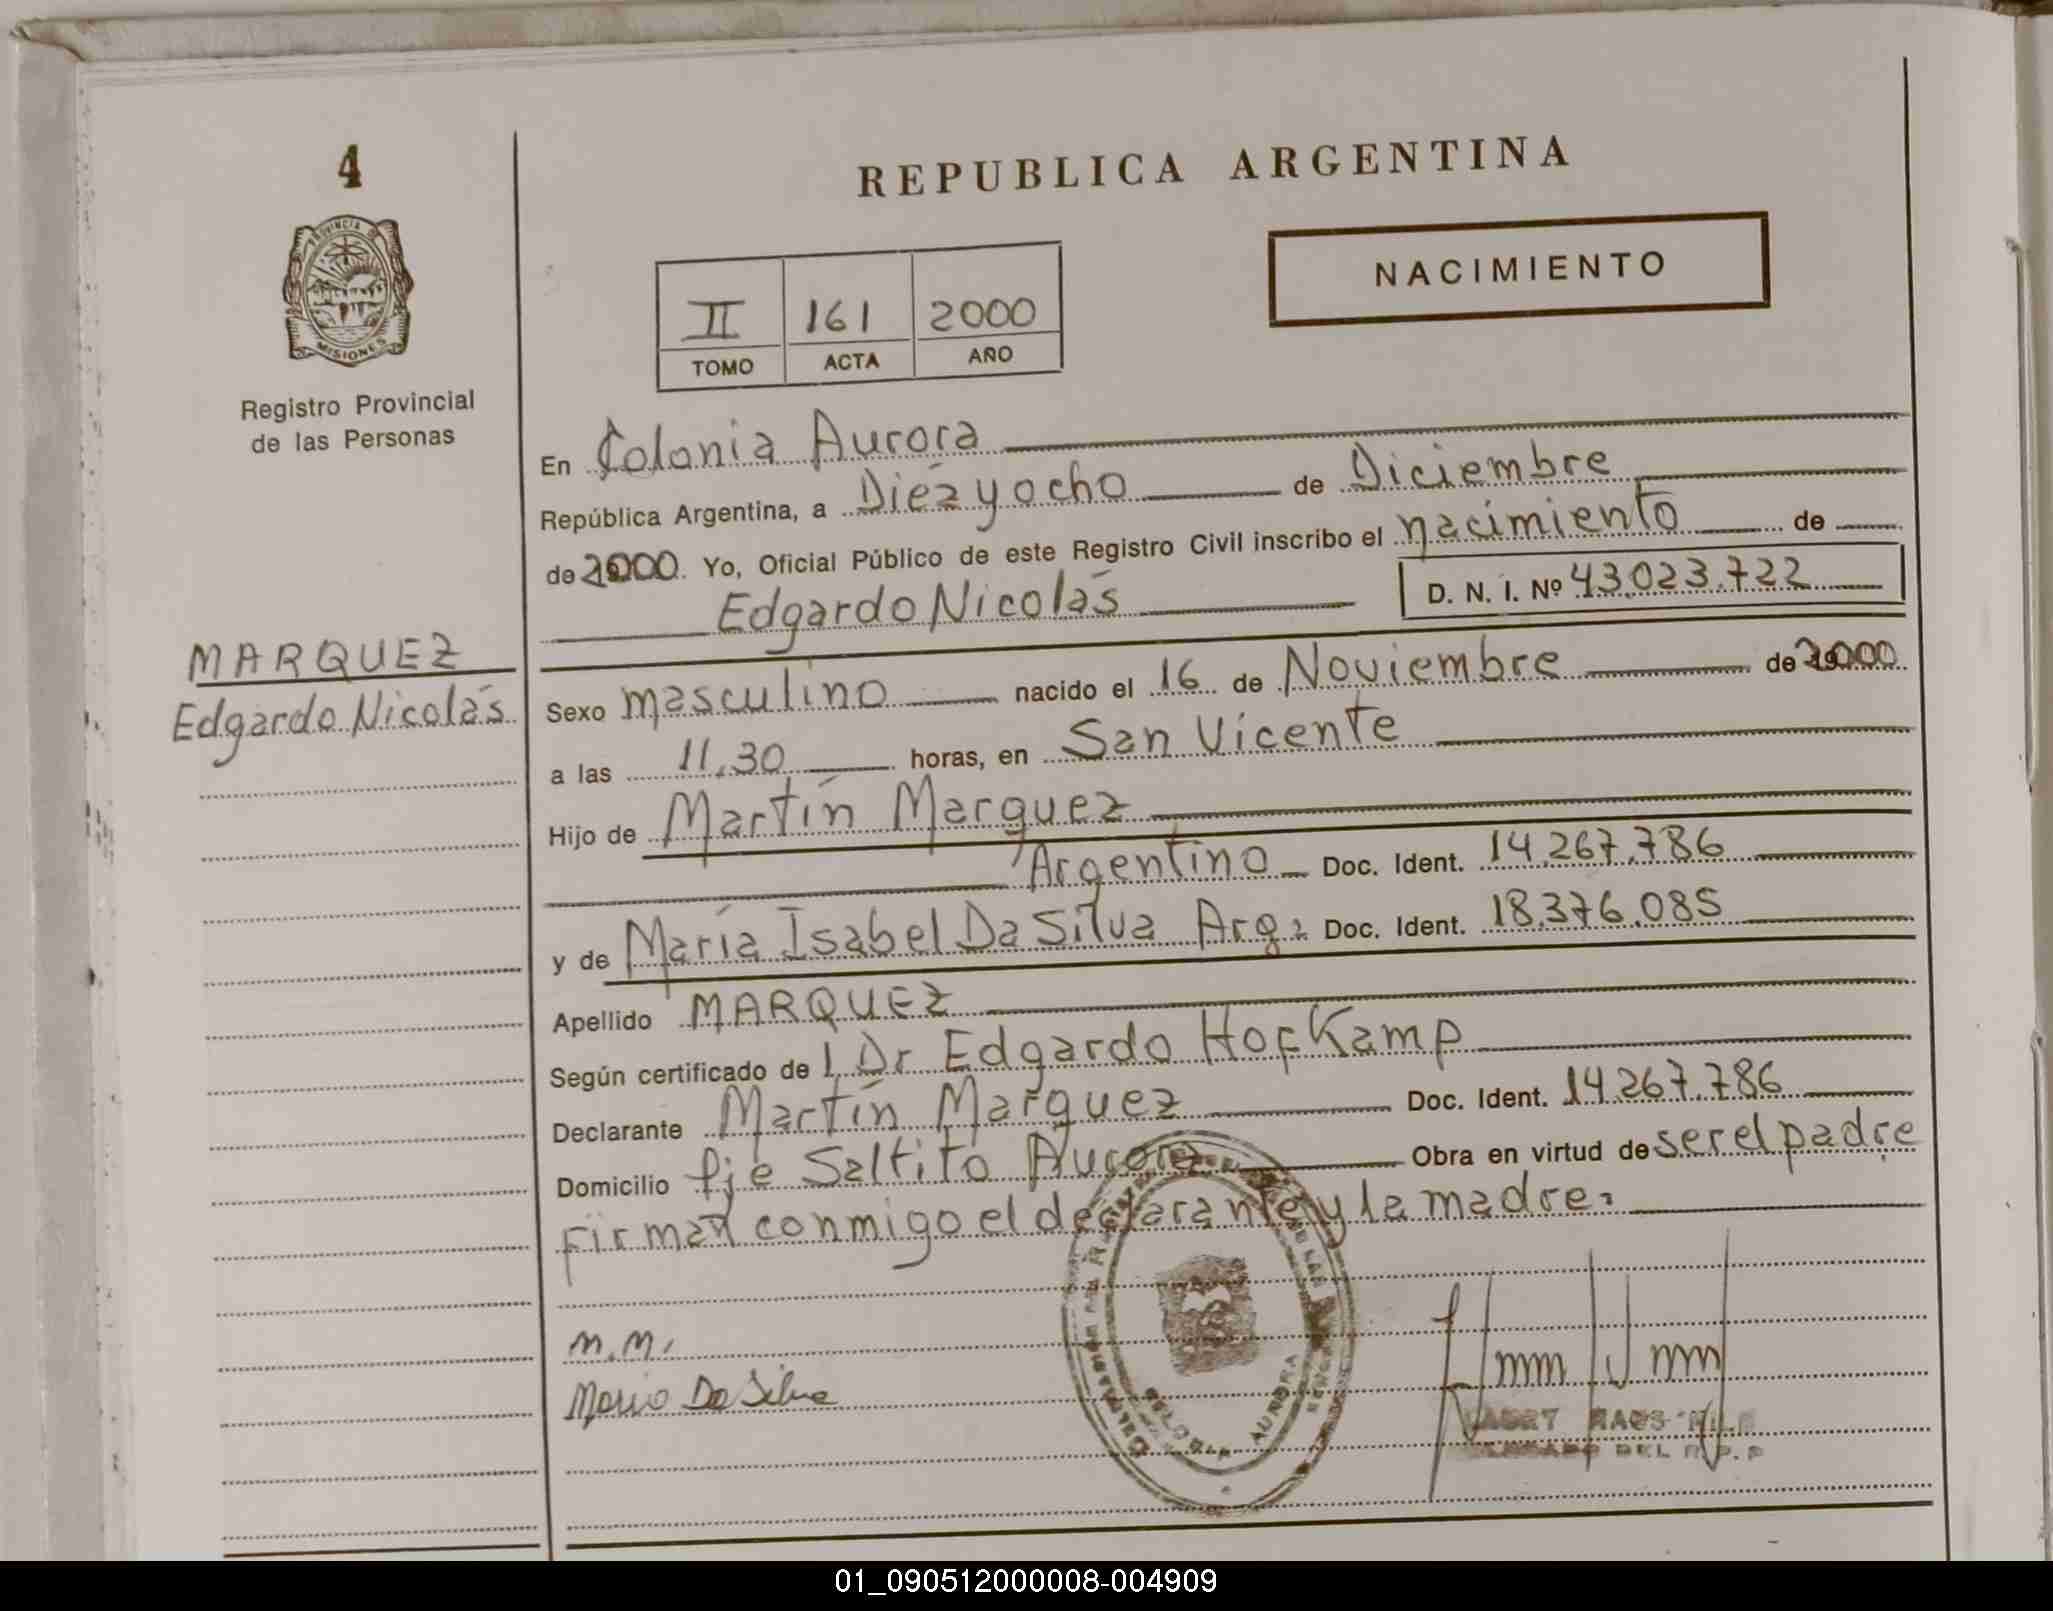 4
REPUBLICA ARGENTINA
PROVINCIA DE
MISIONES
NACIMIENTO
II 161 2000
TOMO ACTA AÑO
Registro Provincial
de las Personas
En Colonia Aurora
República Argentina, a Diez y ocho de Diciembre
de 2000. Yo, Oficial Público de este Registro Civil inscribo el nacimiento de
Edgardo Nicolás D. N. I. Nº 43.023.722
MARQUEZ
Edgardo Nicolás
Sexo masculino nacido el 16 de Noviembre de 2000
a las 11.30 horas, en San Vicente
Hijo de Martín Marquez
Argentino Doc. Ident. 14.267.786
y de María Isabel Da Silva Arg. Doc. Ident. 18.376.085
Apellido MARQUEZ
Según certificado de l Dr Edgardo Hofkamp
Declarante Martín Marquez Doc. Ident. 14.267.786
Domicilio Pje Saltito Aurora Obra en virtud de ser el padre
Firman conmigo el declarante y la madre.
M.M.
Da Silva
AURORA
DEL R.P.P
01_090512000008-004909